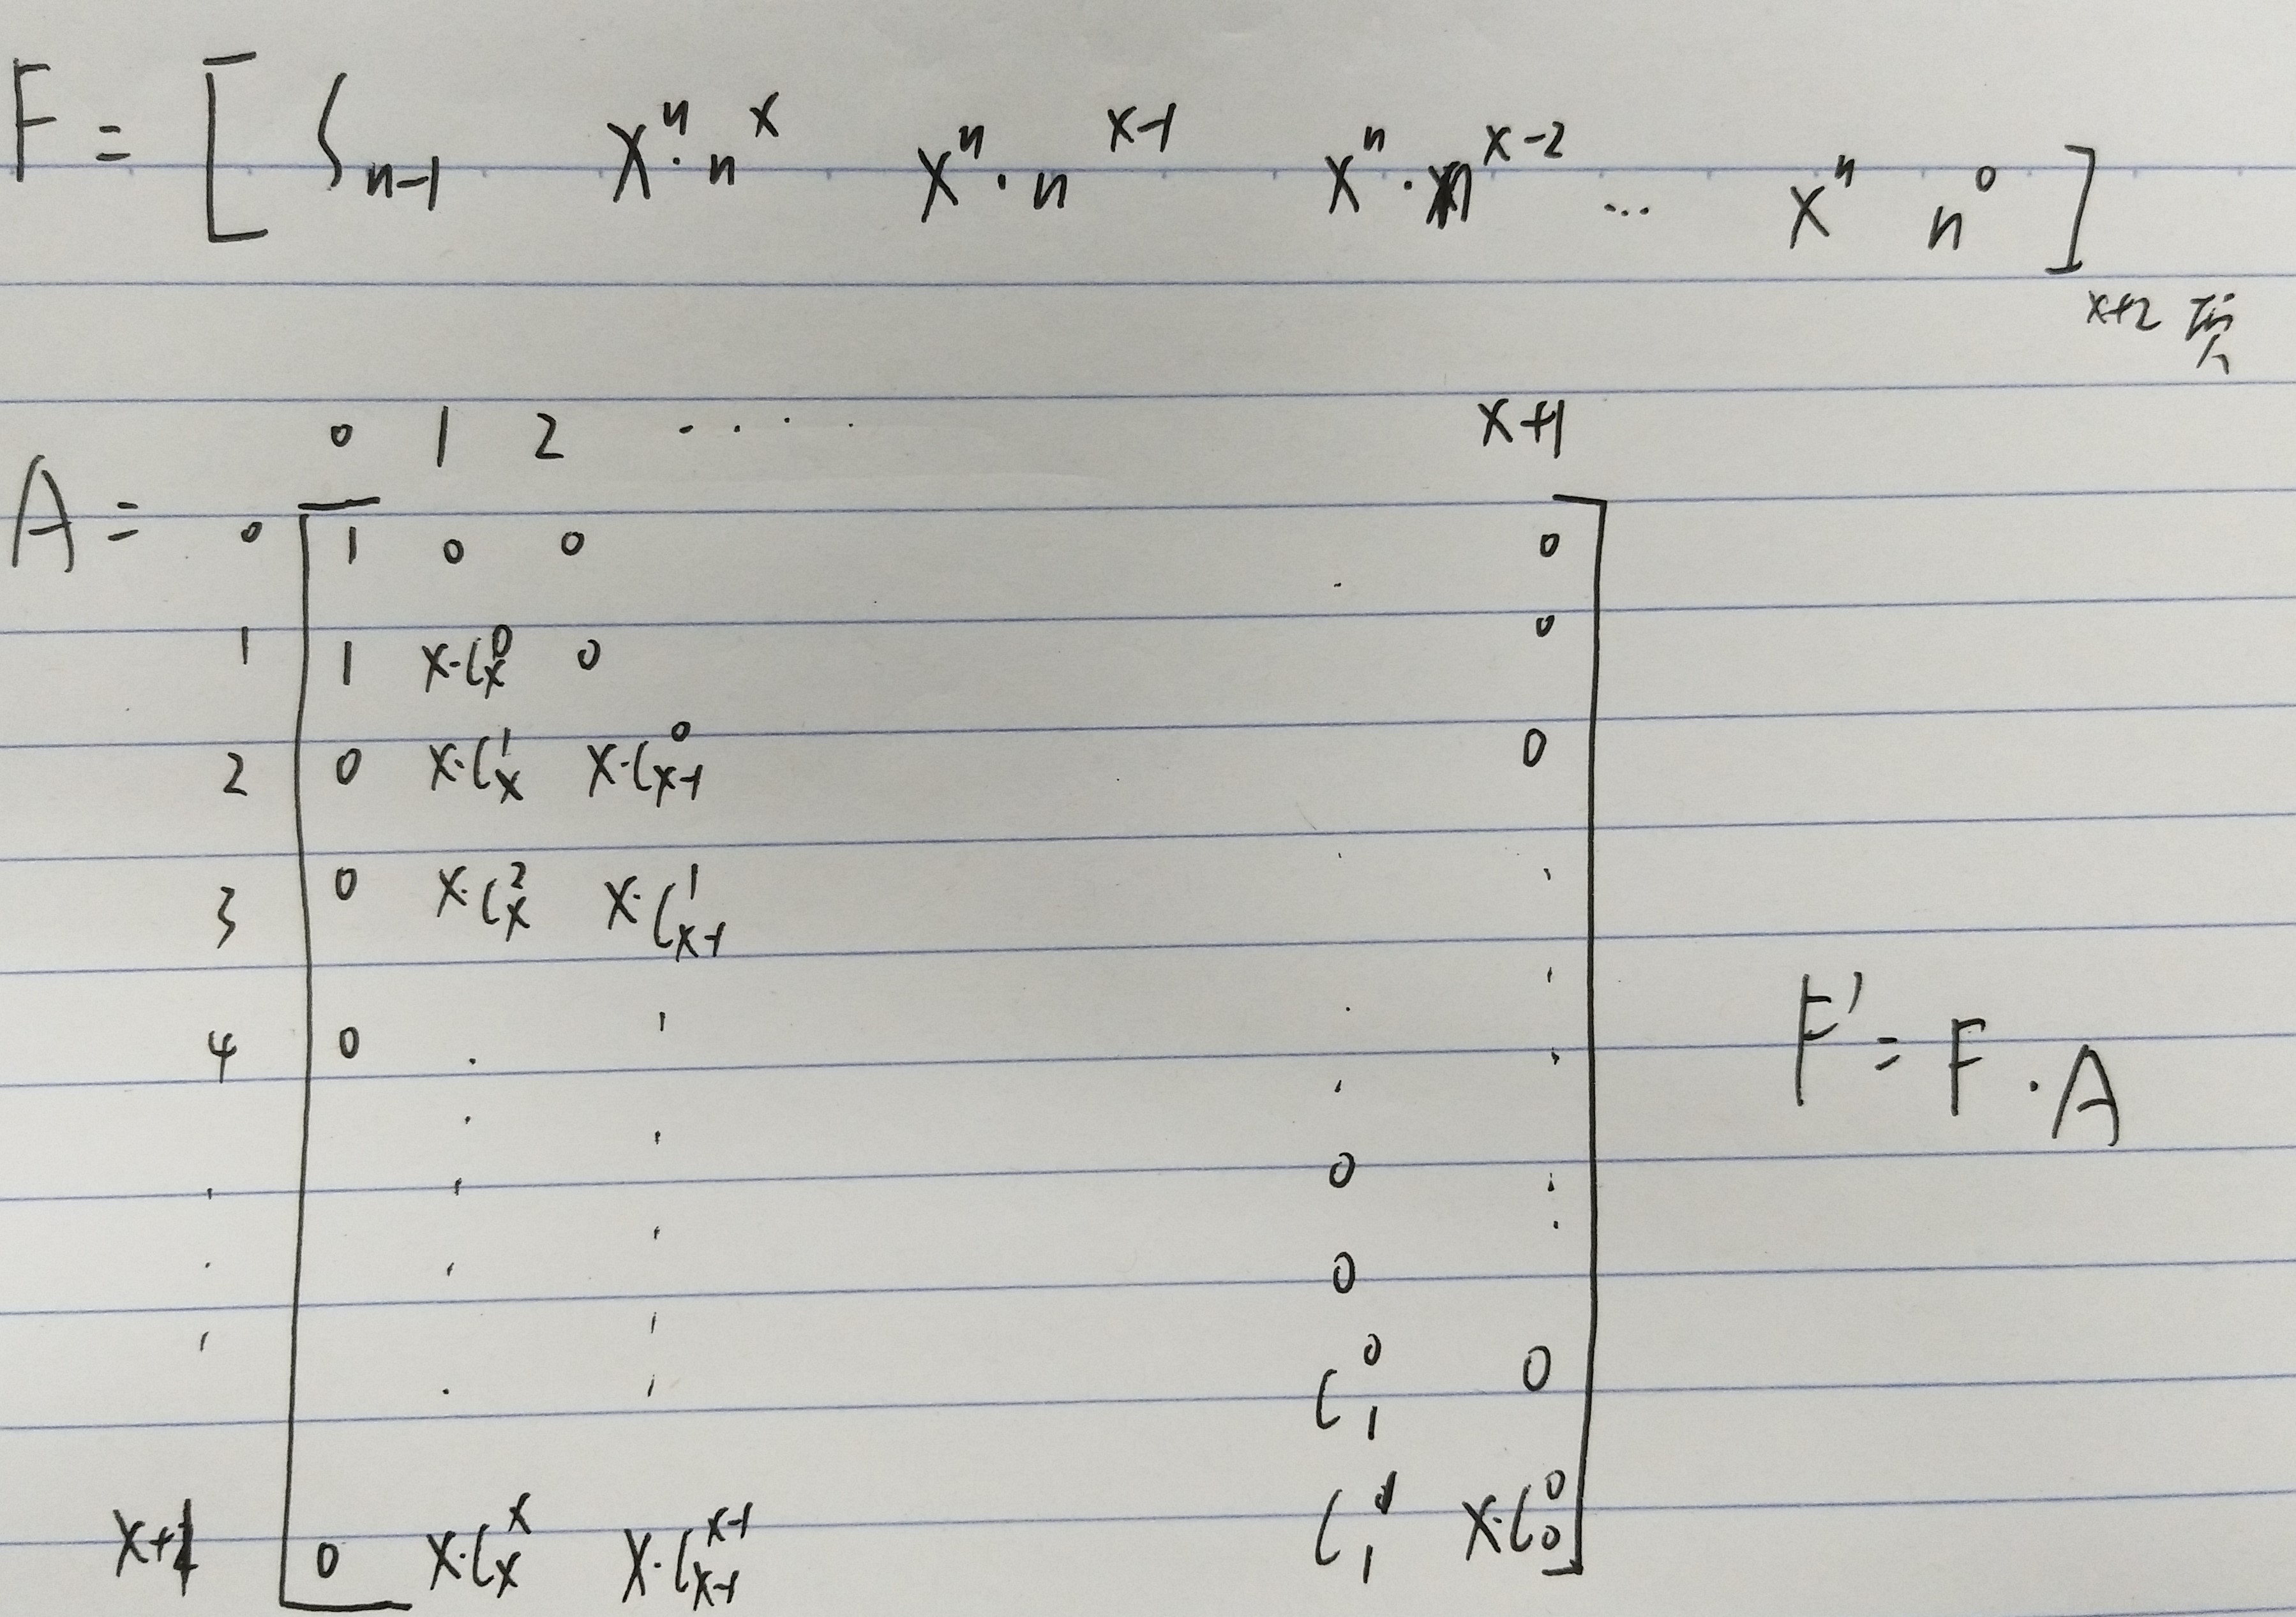 F = [ S_{n-1} x^n·n^x x^n·n^{x-1} x^n·n^{x-2} … x^n n^0 ]
x+2 项
0 1 2 ····· x+1
A = 0 1 0 0 0
1 1 x·C_x^0 0 0
2 0 x·C_x^1 x·C_{x-1}^0 0
3 0 x·C_x^2 x·C_{x-1}^1
F' = F·A
4 0
0
0
C_1^0 0
x+1 0 x·C_x^x x·C_{x-1}^{x-1} C_1^1 x·C_0^0